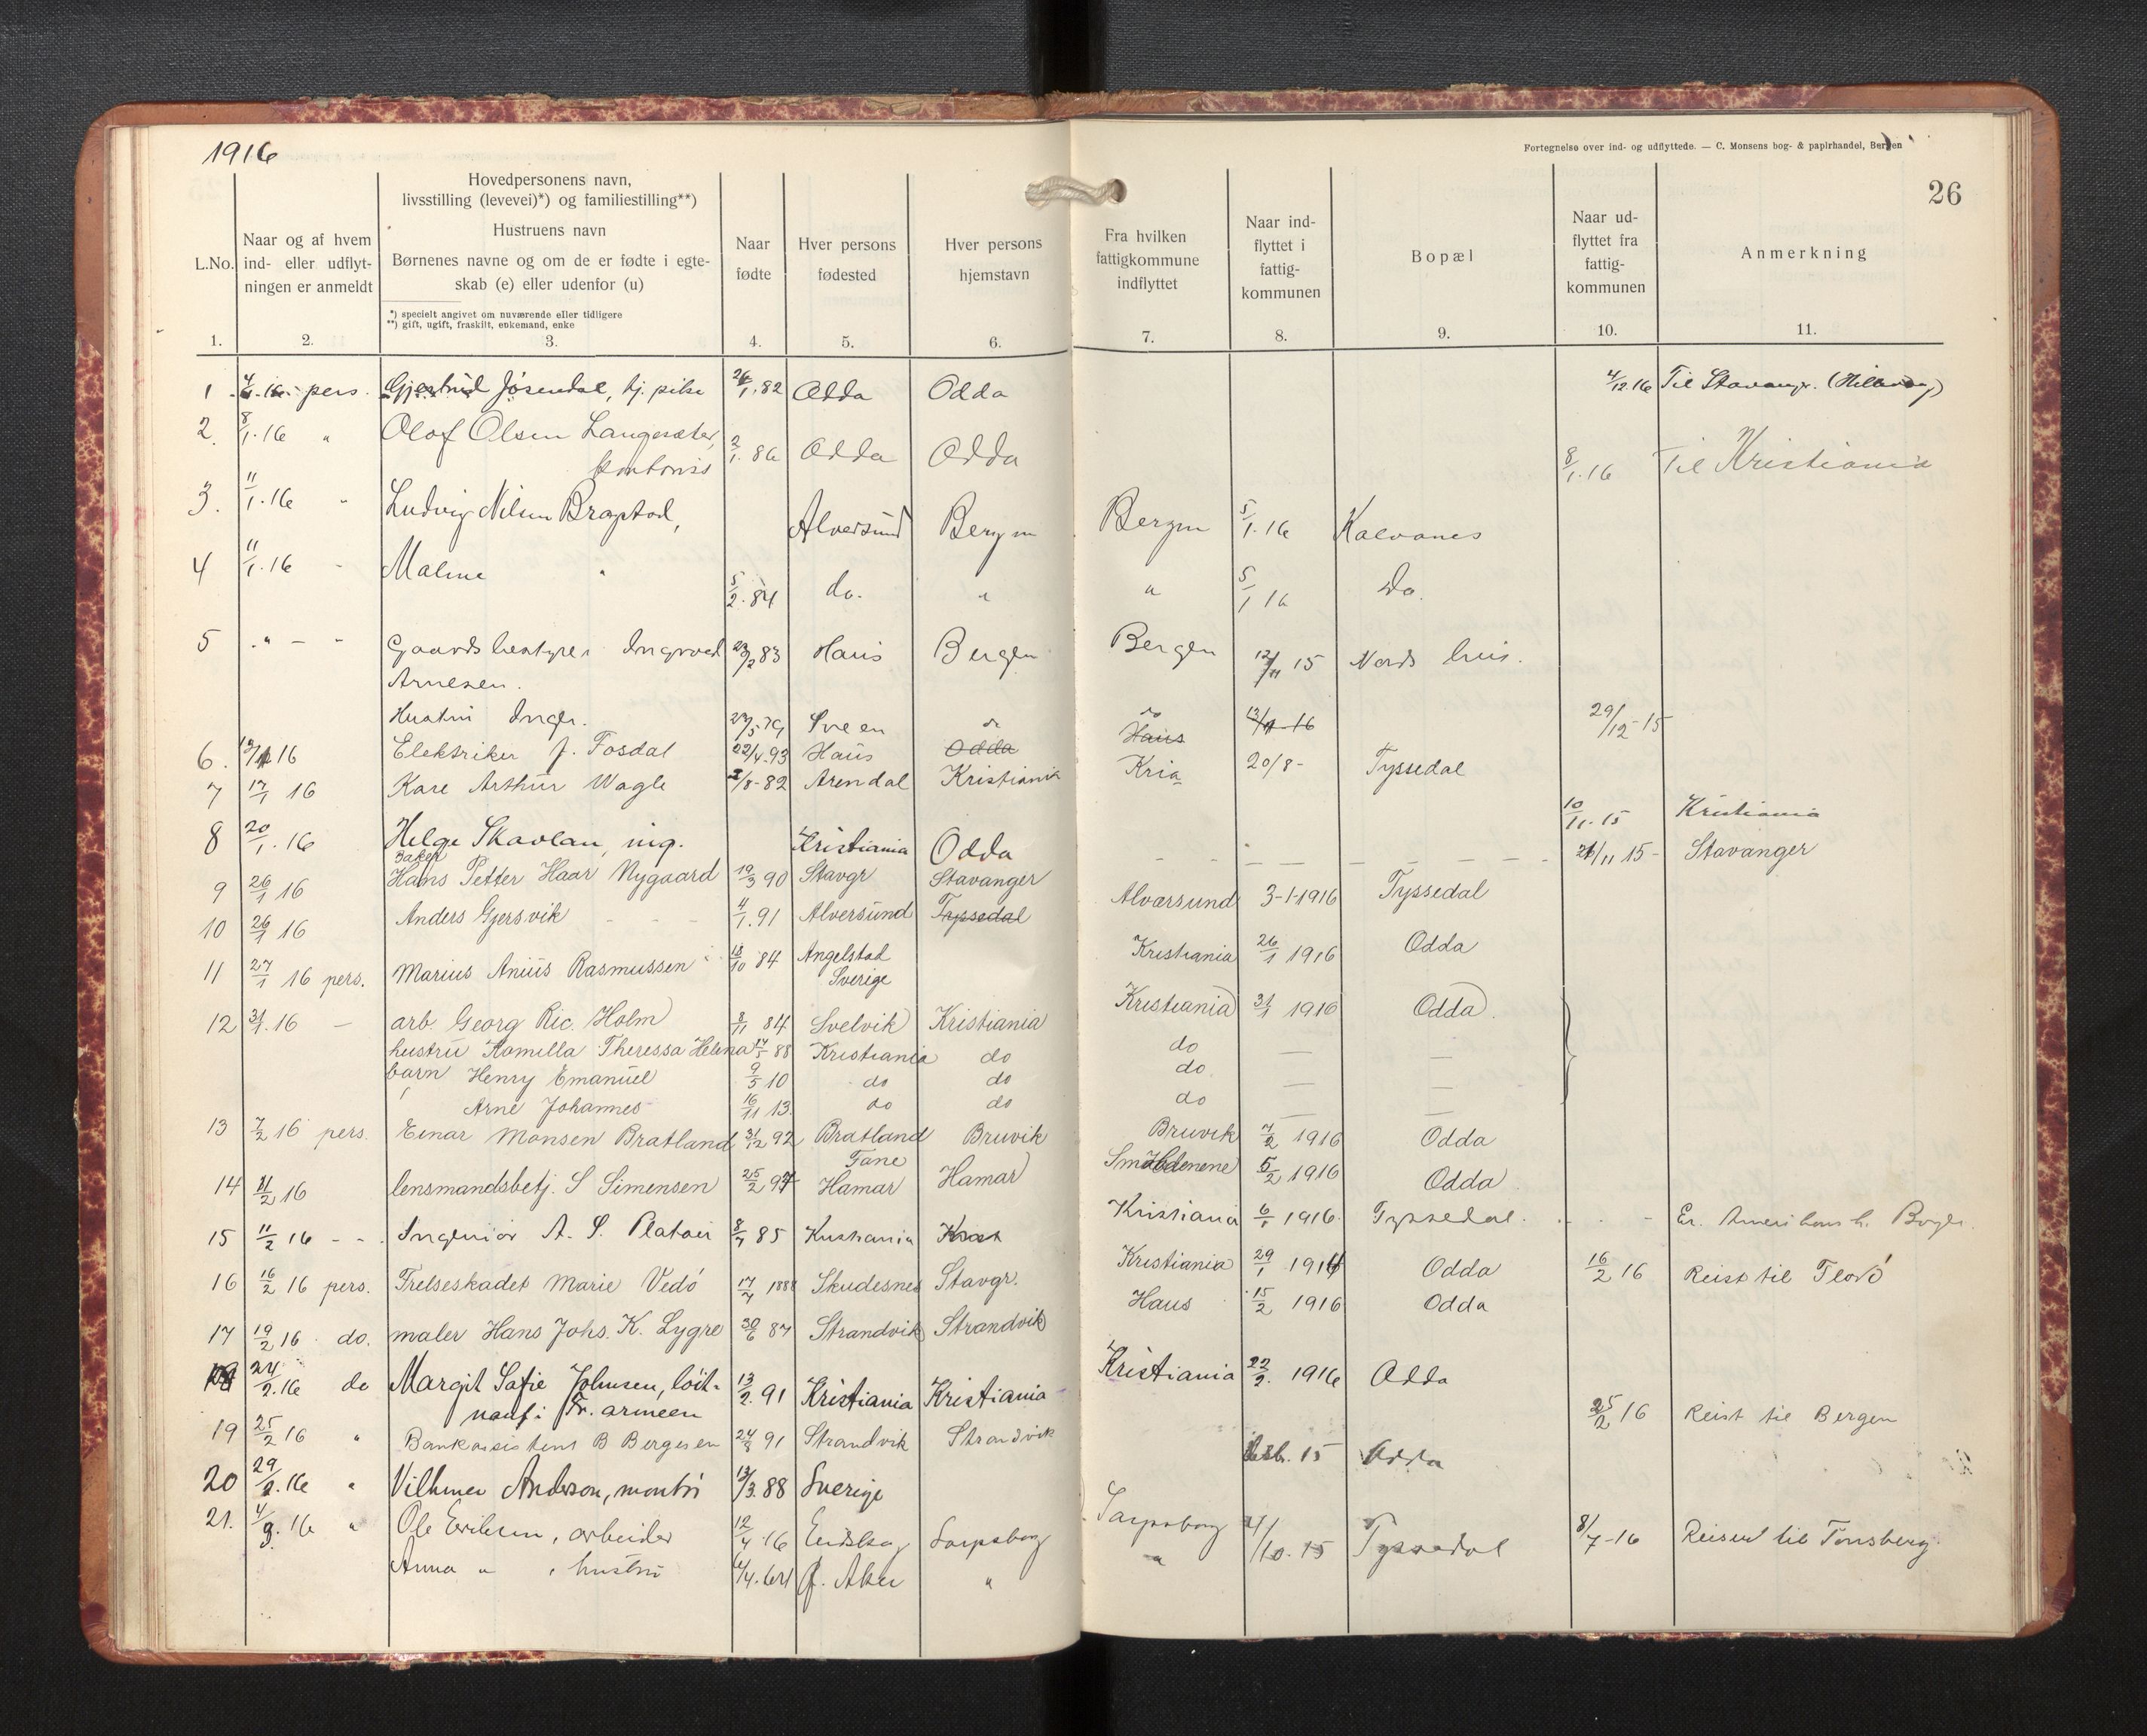 1916
Fortegnelse over ind- og udflyttede. — C. Monsens bog- & papirhandel, Bergen
26
L.No.
Naar og af hvem ind- eller udflyt- ningen er anmeldt
Hovedpersonens navn,
livsstilling (levevei)*) og familiestilling**)
Hustruens navn
Børnenes navne og om de er fødte i egte-
skab (e) eller udenfor (u)
*) specielt angivet om nuværende eller tidligere
**) gift, ugift, fraskilt, enkemand, enke
Naar fødte
Hver persons fødested
Hver persons hjemstavn
Fra hvilken fattigkommune indflyttet
Naar ind- flyttet i fattig- kommunen
Bopæl
Naar ud- flyttet fra fattig- kommunen
Anmerkning
1. 2. 3. 4. 5. 6. 7. 8. 9. 10. 11.
1 pers. Jösendal, tj. pike 82 Odda Odda 4/12.16 Til Stavanger
2. 8/1.16 " Olof Olsen Langesæter, 2/1.86 Odda Odda 8/1.16 Til Kristiania
kontoris
3. 11/1.16 " Ludvig Nilsen Alversund Bergen Bergen 5/1.16 Kalvanes
4 11/1.16 - Malene " 5/2.84 do. " " 5/1 16 Do.
5 " - " Gaardsbestyrer Ingvald 83 Haus Bergen Bergen 15 Nords hus.
Arnesen.
Hustru Inga. do do 29/12-15
6. 16 Elektriker J. Fosdal 22/4.93 Haus Odda Haus
7 17/1 16 Kare Arthur Wagle 82 Arendal Kristiania Kria 20/8- Tyssedal
8 20/1.16 Helge Skavlan, ing. Kristiania Odda 10/11.15 Kristiania
Baker
9 26/1 16 Hans Petter Haar Nygaard 19/3 90 Stavgr Stavanger 15- Stavanger
10 26/1 16 Anders Gjersvik 4/1.91 Alversund Tyssedal Alversund 3-1-1916 Tyssedal
11 27/1 16 pers. Marius Anius Rasmussen 18/10 84 Angelstad Kristiania 26/1 1916 Odda
Sverige
12 31/1.16 - arb Georg Ric. Holm 8/11 84 Svelvik Kristiania Kristiania 31/1 1916 Odda.
hustru Kamilla Theressa Helena 88 Kristiania do do — —
barn Henry Emanuel 9/5 10 do do do — —
Arne Johannes 16/11 13. do do do — —
13 7/2 16 pers. Einar Monsen Bratland 31/12 92 Bratland Bruvik Bruvik 7/2 1916 Odda
Tane
14 11/2 16 lensmandsbetj. S Simensen 25/2 Hamar Hamar 5/2 1916 Odda
15 11/2 16 - - Ingeniör A. S. Platou 8/7 85 Kristiania Krist Kristiania 6/1 1916. Tyssedal. Er.
16 16/2 16 pers. Frelseskadet Marie Vedö 17/7 1888 Skudesnes Stavgr. Kristiania 29/1 Odda 16/2 16 Reist til Florö
17 19/2 16 do. maler Hans Johs. K. Lygre 30/6 87 Strandvik Strandvik Haus 15/2 1916 Odda
18 24/2.16 do Margit Sofie Johnsen, löit- 13/2.91 Kristiania Kristiania Kristiania 22/2. 1916 Odda
nant i Fr. armeen
19 25/2 16 " Bankassistent B Bergesen 24/8 91 Strandvik Strandvik 25/2 16 Reist til Bergen
20 29/2.16 " Vilhmer Anderson, montör 88 Sverige 15 Odda
21. 16 " Ole Eriksen, arbeider Sarpsborg Sarpsborg 15 Tyssedal 8/7-16 Reised til Tönsberg
Anna " , hustru 4/4.64 Aker " "